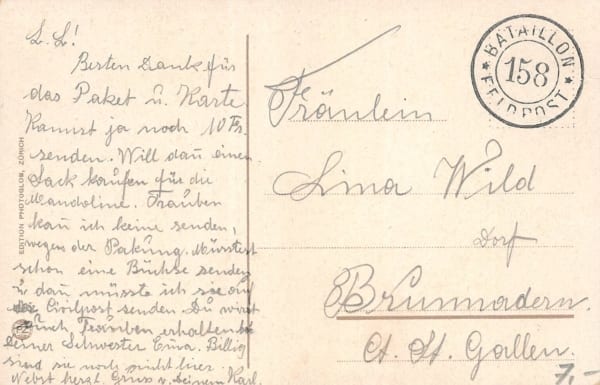 L. L!
Besten Dank für
das Paket u. Karte
Kannst ja noch 10 Fr.
senden. Will dan einen
Sack kaufen für die
Mandoline. Trauben
kan ich keine senden,
wegen der Pakung. Müsstest
schon eine Büchse senden
u dan müsste ich sie auf
die Civilpost senden. Du wirst
auch Trauben erhalten bei
deiner Schwester Billig
sind sie noch nicht hier.
Nebst herzl. Gruss v. Deinem Karl.
EDITION PHOTOGLOB, ZÜRICH
BATAILLON
158
FELDPOST
Fräulein
Lina Wild
Dorf
Brunnadern.
Ct. St. Gallen.
7.-